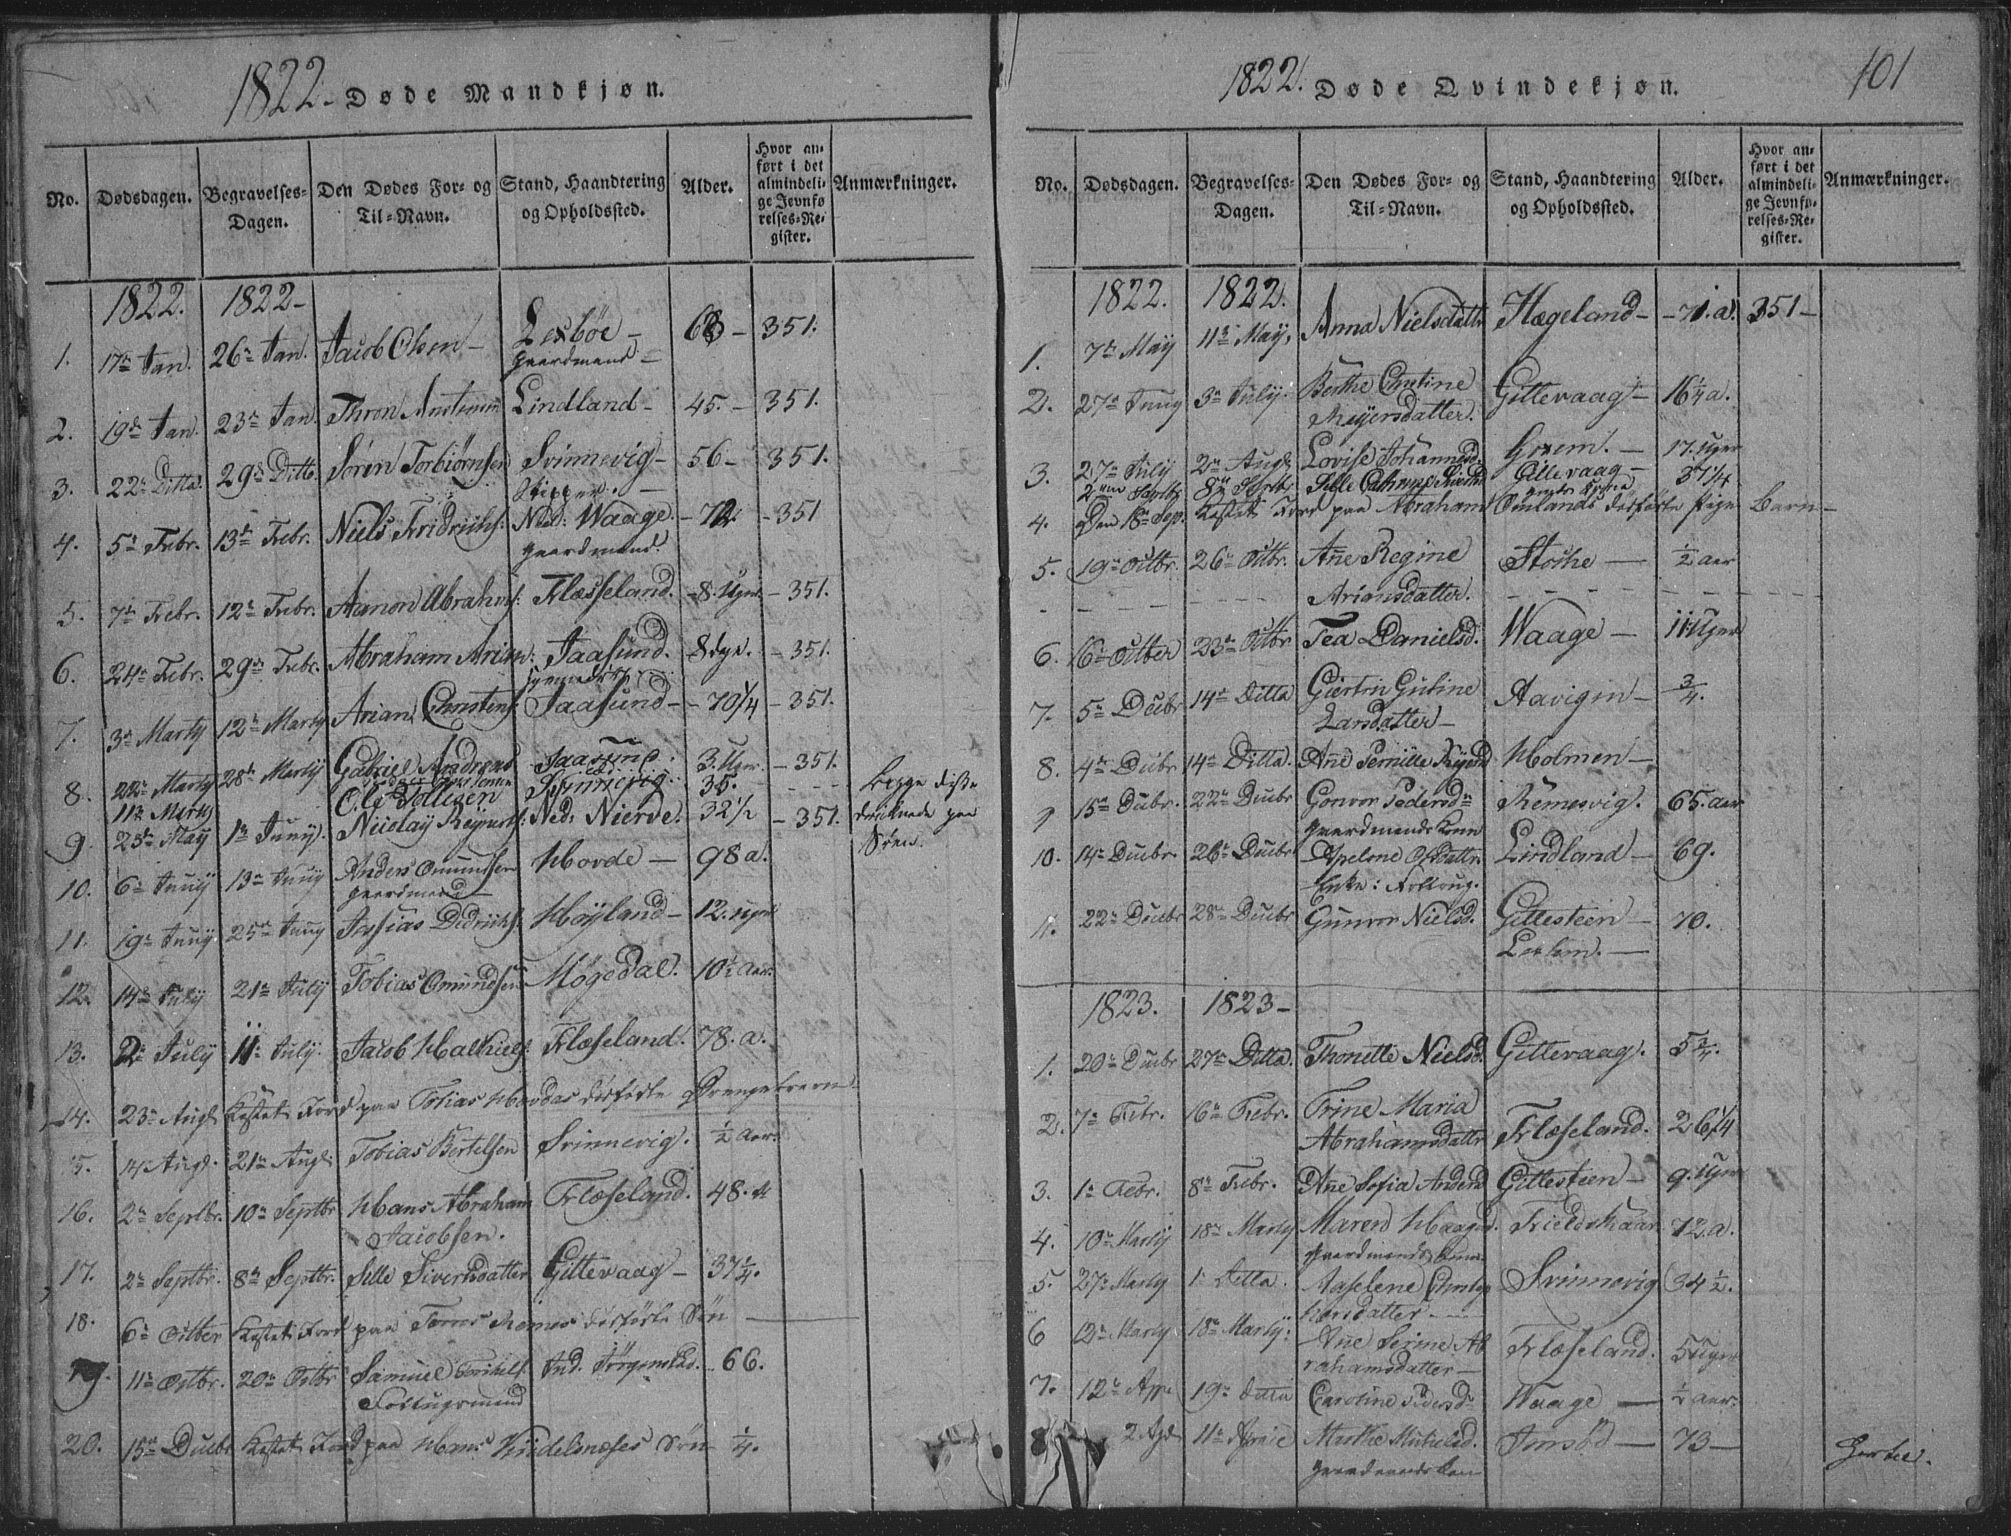 1822. Døde Mandkjøn.
No. Dødsdagen. Begravelses-Dagen. Den Dødes For- og Til-Navn. Stand, Haandtering og Opholdssted. Alder. Hvor anført i det almindelige Jevnførelses-Register. Anmærkninger.
1822. 1822-
1. 17de Jan. 26de Jan. Jacob Olsen - Lexbøe - 68 - 351.
Gaardmand -
2. 19de Jan. 23de Jan. Thron Lindland - 45. - 351.
3. 22de Ditto. 29de Ditto Søren Torbiørnsen Svinnevig - 56 - 351.
Skipper. -
4. 5te Febr. 13de Febr. Niels Fridrichs: Ned: Waage. - 72. - 351
Gaardmand.
5. 7de Febr. 12te Febr. Aanon Abrahms: Flæsseland. - 8. Uger - 351.
6. 24de Febr. 29de Febr. Abraham Arians: Jaasund. 8 dge. - 351.
7. 3de Marty 12te Marty Arian Christens: Jaasund - - 70 1/4 - 351.
8. 22de Marty 28de Marty Gabriel Andreas Jaasund 3. Uger. - 351.
11te Marty Ole Tollisen Svinnevig. 35. - - - - Begge disse
9. 25de May 1te Juny. Nicolay Reyerts: Ned: Nierve. 32 1/2 - 351. druknede paa
Søen.
10. 6te Juny 13de Juny Anders Omundsen Hovde - 98 a.
Gaardmand
11. 19de Juny 25de Juny Josias Didrichs: Høyland - 12. uger
12. 14de July 21de July Tobias Omundsen Møgedal. 10 1/2 Aar.
13. 2de July 11te July. Jacob Mathiels: Flæseland. 78. a.
14. 23de Augt Kastet Jord paa Tobias Hovdas dødfødte Drengebarn
15. 14 Augt. 21de Augt Tobias Bertelsen Svinnevig. 1/2 Aar.
16. 2de Septbr. 10de Septbr Hans Abraham Flæseland. 48.
Jacobsen.
17. 2de Septbr. 8de Septbr. Sille Sivertsdatter Gittevaag - 37 1/4.
18. 6te Octber Kastet Jord paa Remes dødfødte Søn
19. 11te Octbr. 20de Octbr Samuel Ind. Jørgenstad. 66.
20. 15de Decbr Kastet Jord paa Hans Vridelsnæses Søn 1/4.
1822. Døde Qvindekjøn. 101
No. Dødsdagen. Begravelses-Dagen. Den Dødes For- og Til-Navn. Stand, Haandtering og Opholdssted. Alder. Hvor anført i det almindelige Jevnførelses-Register. Anmærkninger.
1822. 1822.
1. 7de May 11te May. Anna Nielsdattr Hægeland - - 71. a. 351 -
2. 27de Juny 3de July. Berthe Christine Gittevaag - 16 1/4 a.
Reyersdatter.
3. 27de July 2de Augt Lovise Johannesd. Græm. - 17. Uger
2den Septbr 8de Septbr Sille Sivertsd Gittevaag - 37 1/4
4. Den 18de Sep. Kastet Jord paa Abraham Omlands dødfødte Pige Barn -
5. 19de Octbr. 26de Octbr. Ane Regine Stoshe - 1/2 aar
Ariansdatter.
6. 16de Octber 23de Octbr Tea Danielsd. Waage - 11 Uger
7. 5te Decbr 14de Ditto Giertru Guline Aavigen - 3/4.
Larsdatter -
8. 4de Decbr 14de Ditto. Ane Pernille Holmen -
9 15de Decbr. 22de Decbr Gonvor Pedersdr Remesvig. 65. aar
Gaardmands Kone
10. 14de Decbr. 26de Decbr Lindland - 69.
Enke:
11. 22de Decbr 28de Decbr Gunvor Nielsd. Gittesteen - 70.
1823. 1823 -
1. 20de Decbr 27de Ditto. Thonette Nielsd. Gittevaag. 5 3/4.
2. 7de Febr. 16de Febr. Trine Maria
Abrahamsdattr Flæseland. 26 1/4
3. 1te Febr. 8de Febr. Ane Sofia Andersd Gittesteen - 9. Uger
4. 10de Marty 18de Marty Maren 72. a.
Gaardmands Kone
5. 27de Marty 1te Ditto. Aaselene Svinnevig 34 1/2.
6 12te Marty 18de Marty: Ane Serine Ab
rahamsdatter - Flæseland. 5 Uger
7. 12te Apr 19de Ditto Caroline Pedersdr Waage - 1/2 Aar.
8 2 Apr 11te Aprile Marthe 73 -
Gaardmands Kone